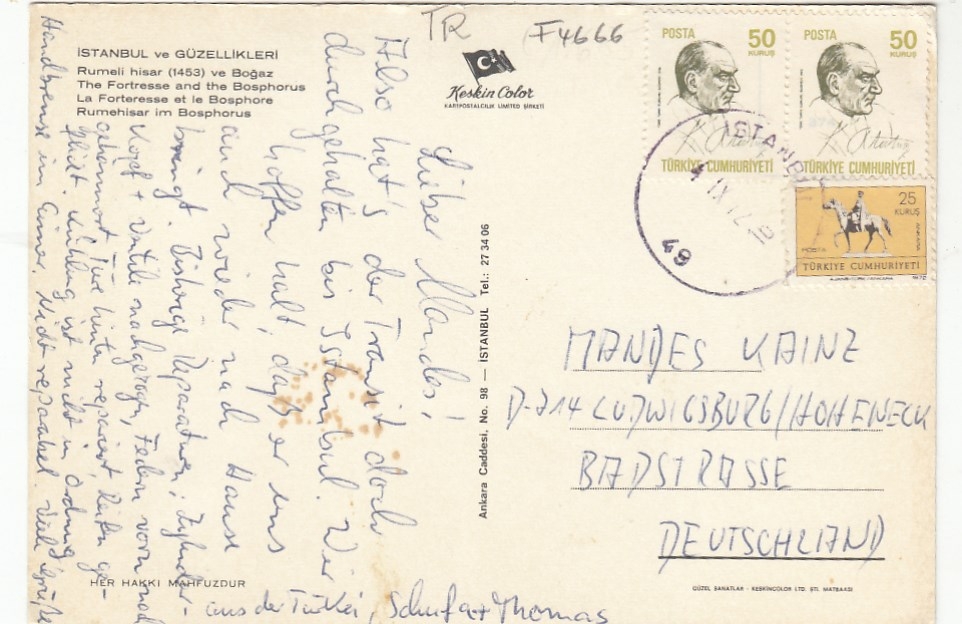 TR
F4666
İSTANBUL ve GÜZELLİKLERİ
Rumeli hisar (1453) ve Boğaz
The Fortresse and the Bosphorus
La Forteresse et le Bosphore
Rumehisar im Bosphorus
Keskin Color
KARTPOSTALCILIK LIMITED ŞİRKETİ
POSTA
50
KURUŞ
TÜRKİYE CUMHURİYETİ
POSTA
50
KURUŞ
TÜRKİYE CUMHURİYETİ
25
KURUŞ
POSTA
TÜRKİYE CUMHURİYETİ
1972
İSTANBUL
49
Lieber Mandes!
Also hat's der Transit doch
durchgehalten bis Istanbul. Wir
hoffen halt, daß er uns
auch wieder nach Hause
bringt. Bisherige Reparaturen: Zylinder-
kopf + Ventile nachgezogen, Federn vorn nach
gehämmert, Türe hinten repariert, Reifen ge-
flickt. Kühlung ist nicht in Ordnung,
Handbremse im Eimer. Nicht reparabel. Viele Grüße
aus der Türkei, Schufa + Thomas
Ankara Caddesi. No. 98 — İSTANBUL Tel.: 27 34 06
MANDES KAINZ
D-714 LUDWIGSBURG/HOHENECK
BADSTRASSE
DEUTSCHLAND
HER HAKKI MAHFUZDUR
GÜZEL SANATLAR - KESKİNCOLOR LTD. STİ. MATBAASI